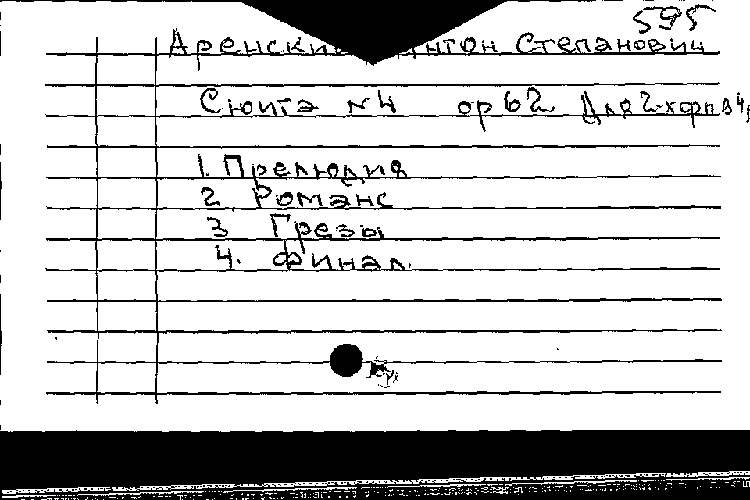 595
Аренский Антон Степанович
Сюита №4 ор 62 Для 2-х фп в 4
1. Прелюдия
2. Романс
3 Грезы
4. Финал.